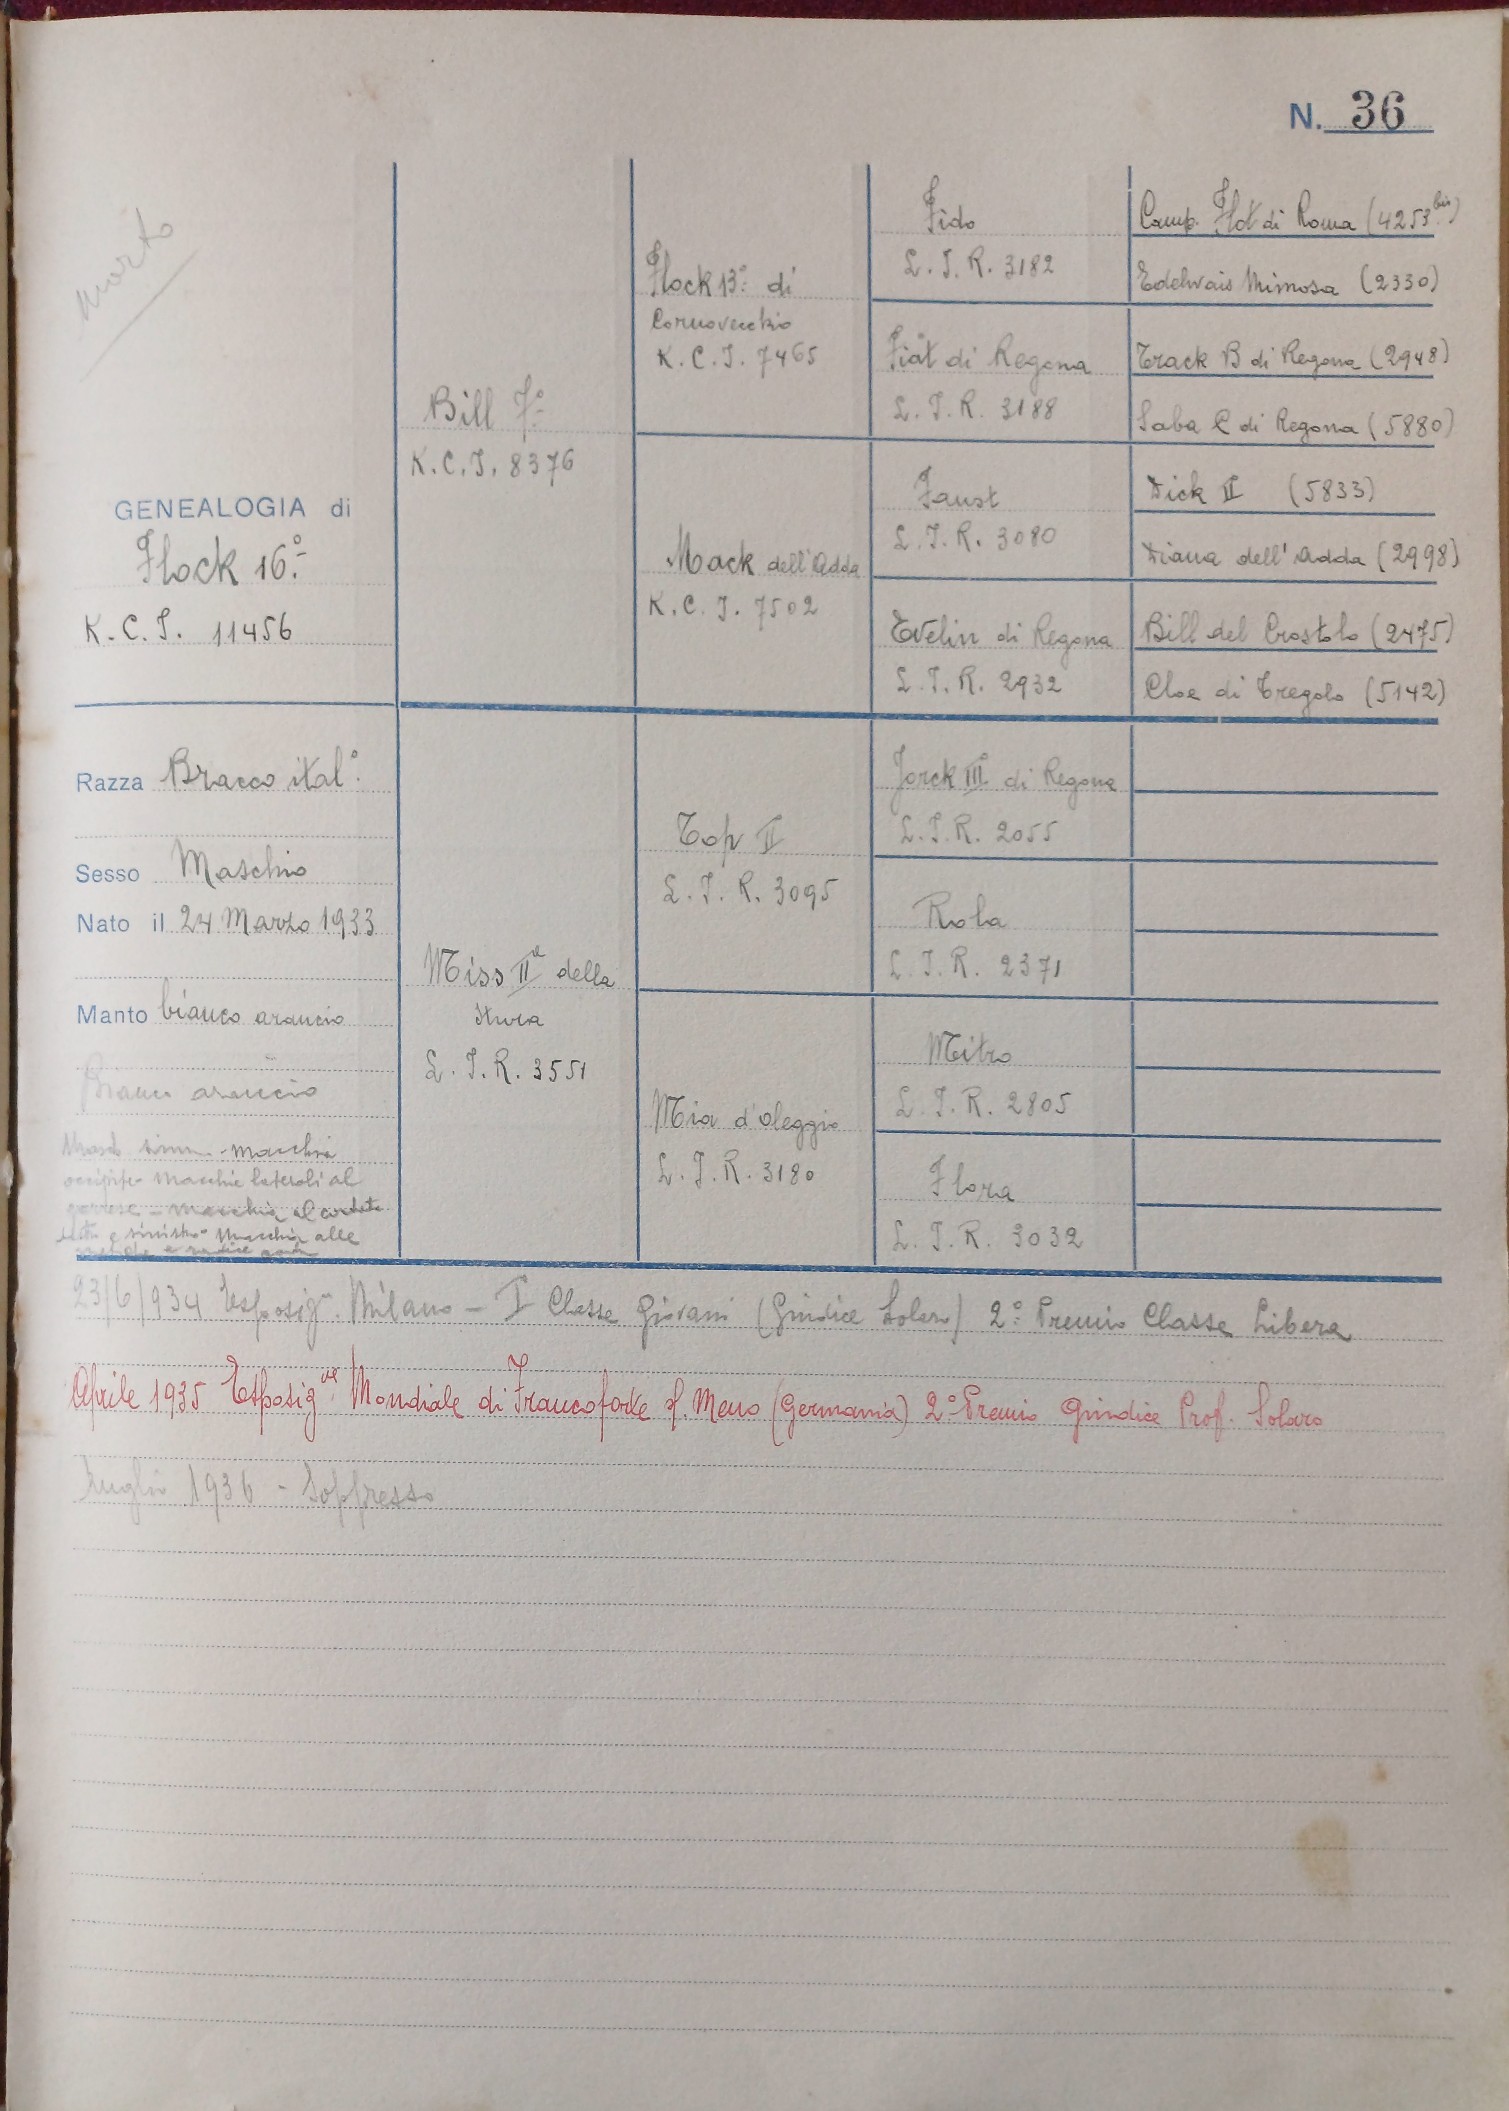 N. 36
morto
GENEALOGIA di
Flock 16º
K.C.I. 11456
Razza Bracco ital.º
Sesso Maschio
Nato il 24 Marzo 1933
Manto bianco arancio
Bianco arancio
macchia
occipite macchie laterali al
macchia al costato
e sinistro macchia alle
e radice coda
Bill 7º
K.C.I. 8376
Miss IIª della
Stura
L.I.R. 3551
Flock 13º di
Cornovecchio
K.C.I. 7465
Mack dell'Adda
K.C.I. 7502
Top II
L.I.R. 3095
Mia d'Oleggio
L.I.R. 3180
Fido
L.I.R. 3182
Fiat di Regona
L.I.R. 3188
Faust
L.I.R. 3080
Evelin di Regona
L.I.R. 2932
Jorck III di Regona
L.I.R. 2055
Rola
L.I.R. 2371
Mitro
L.I.R. 2805
Flora
L.I.R. 3032
Camp. Flot di Roma (4253 bis)
Edelvais Mimosa (2330)
Track B di Regona (2948)
Saba C di Regona (5880)
Dick II (5833)
Diana dell'Adda (2998)
Bill del Crostolo (2475)
Cloe di Tregolo (5142)
23/6/934 Esposizⁿ. Milano - I Classe Giovani (Giudice Solaro) 2º Premio Classe Libera
Aprile 1935 Esposizⁿᵉ Mondiale di Francoforte s/. Meno (Germania) 2º Premio Giudice Prof. Solaro
Luglio 1936 - Soppresso